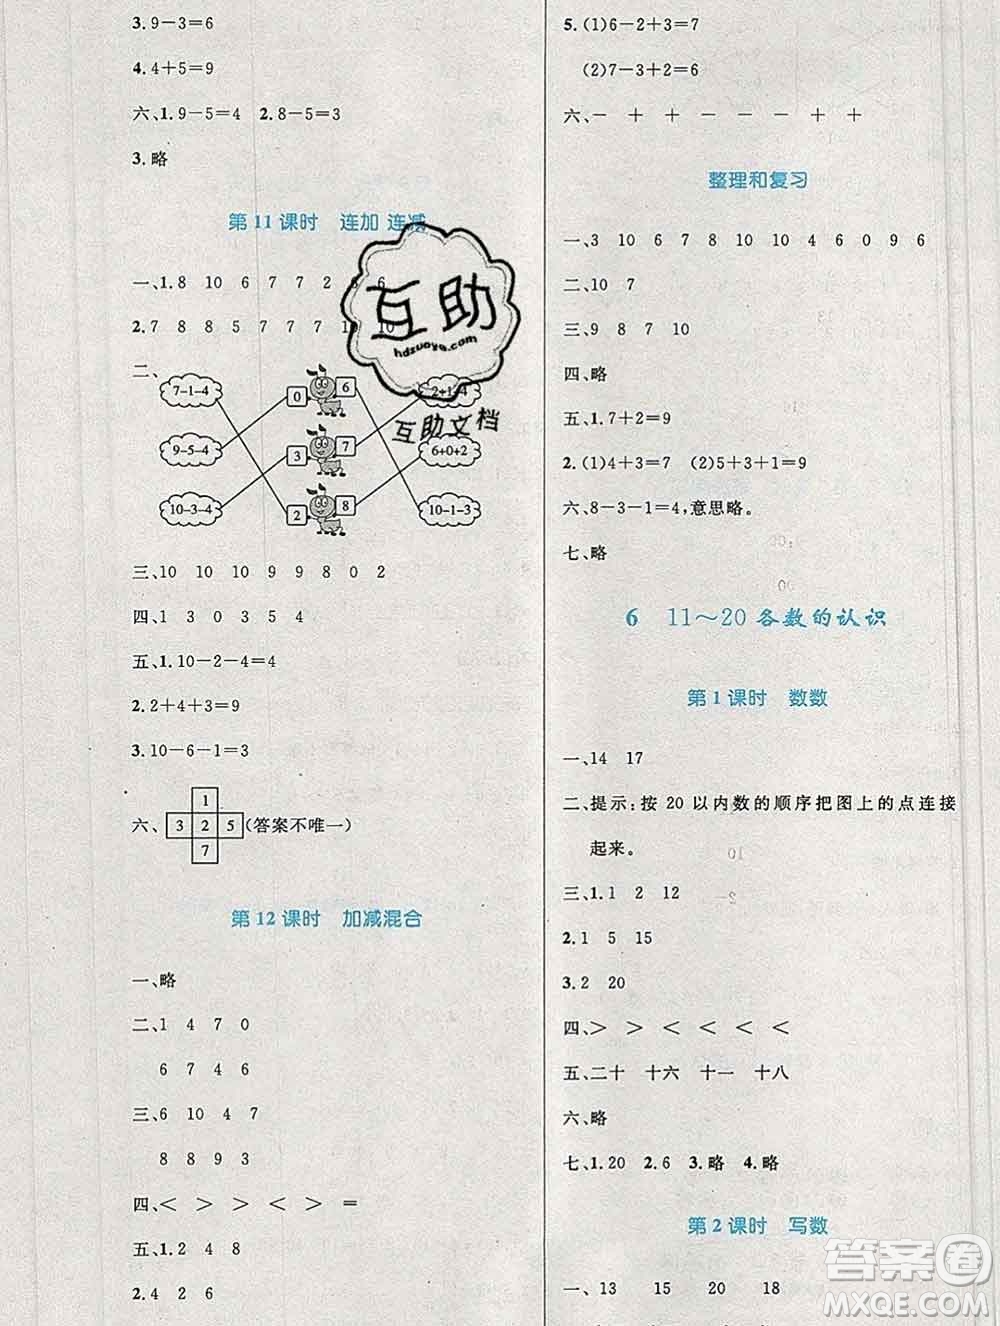 3.9－3＝6
4.4＋5＝9
六、1.9－5＝4 2.8－5＝3
3.略
第 11 课时 连加 连减
一、1.8 10 6 7 7 2 6
2.7 8 8 5 7 7 7 10 10
二、
7-1-4 0 6 2+1+4
9-5-4 3 7 6+0+2
10-3-4 2 8 10-1-3
三、10 10 10 9 9 8 0 2
四、1 3 0 3 5 4
五、1.10－2－4＝4
2.2＋4＋3＝9
3.10－6－1＝3
1
六、 3 2 5 (答案不唯一)
7
第 12 课时 加减混合
一、略
二、1 4 7 0
6 7 4 6
三、6 10 4 7
8 8 9 3
四、＜ ＞ ＞ ＜ ＞ ＝
五、1.2 4 8
2.4 2 6
5.(1)6－2＋3＝7
(2)7－3＋2＝6
六、－ ＋ ＋ － － － ＋ ＋
整理和复习
一、3 10 6 7 10 7 4 6 0 9 6
二、10 7
三、9 8 7 10
四、略
五、1.7＋2＝9
2.(1)4＋3＝7 (2)5＋3＋1＝9
六、8－3－1＝4,意思略。
七、略
6 11～20 各数的认识
第 1 课时 数数
一、14 17
二、提示:按 20 以内数的顺序把图上的点连接
起来。
三、1.1 2 12
2.1 5 15
3.2 20
四、＞ ＞ ＜ ＜ ＜ ＜
五、二十 十六 十一 十八
六、略
七、1.20 2.6 3.略 4.略
第 2 课时 写数
一、13 15 20 18
互助
hdzuoye.com
互助文档
答案圈
MXQE.COM